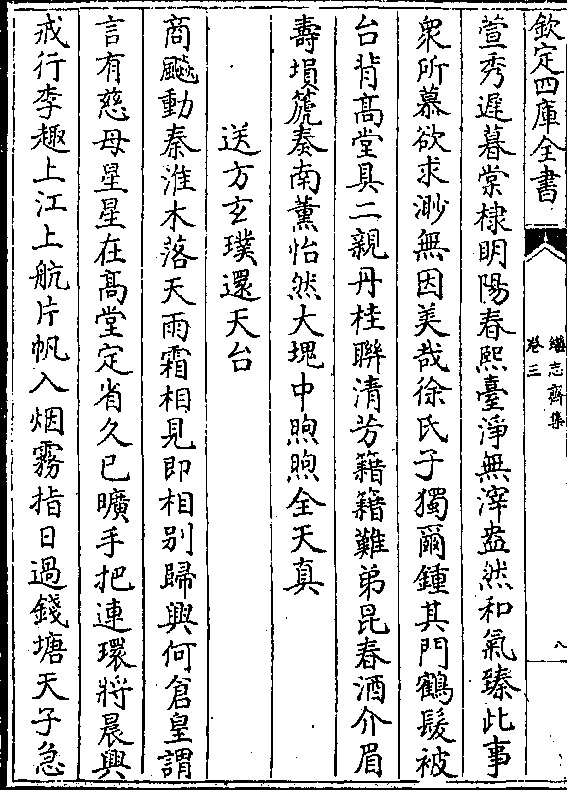 欽定四庫全書
繼志齋集
卷三
八
萱秀遲暮棠棣明陽春熙臺淨無滓盎然和氣臻此事
衆所慕欲求渺無因美哉徐氏子獨爾鍾其門鶴髮被
台背高堂具二親丹桂聯清芳籍籍難弟昆春酒介眉
壽塤篪奏南薰怡然大塊中煦煦全天真
送方玄璞還天台
商飈動秦淮木落天雨霜相見即相别歸興何倉皇謂
言有慈母星星在高堂定省久已曠手把連環將晨興
戒行李趣上江上航片帆入烟霧指日過錢塘天子急